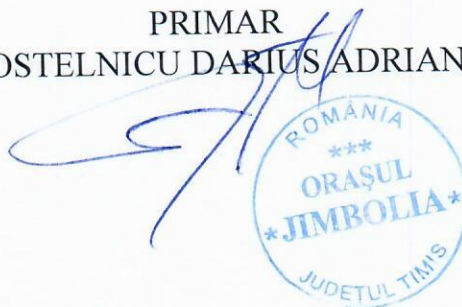 PRIMAR
OSTELNICU DARIUS ADRIAN
ROMÂNIA
***
ORAŞUL
*JIMBOLIA*
JUDETUL TIMIS